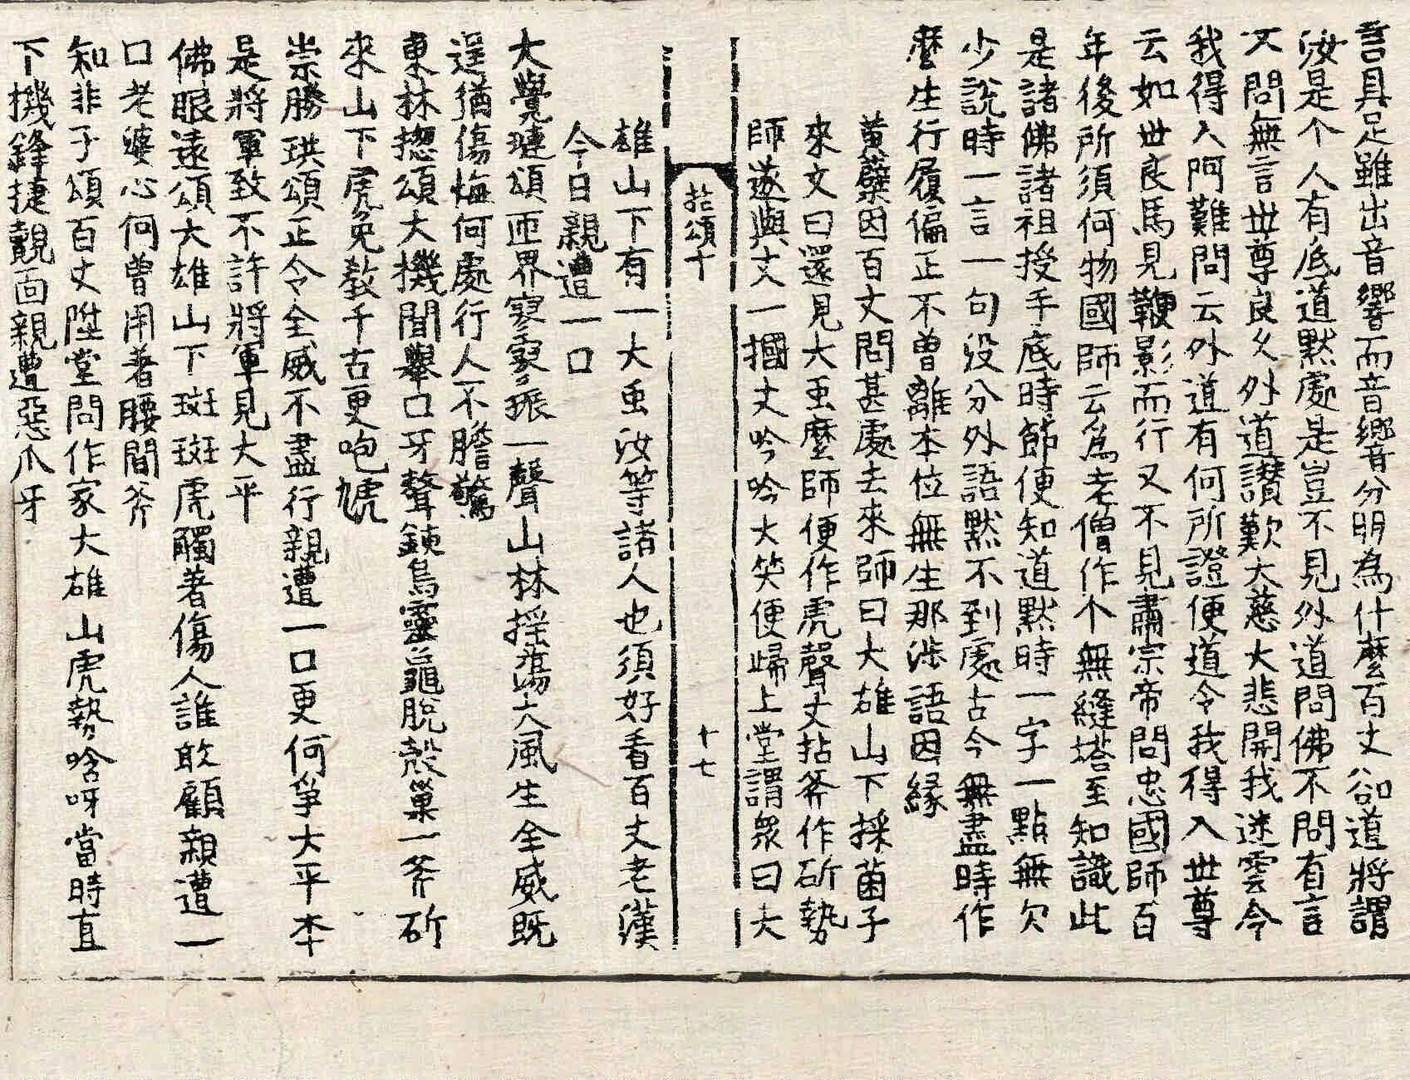 言具足雖出音響而音響分明為什麼百丈卻道將謂
汝是个人有底道默處是豈不見外道問佛不問有言
不問無言世尊良久外道讚歎大慈大悲開我迷雲令
我得入阿難問云外道有何所證便道令我得入世尊
云如世良馬見鞭影而行又不見肅宗帝問忠國師百
年後所須何物國師云為老僧作个無縫塔至知識此
是諸佛諸祖授手底時節便知道默時一字一點無欠
少說時一言一句沒分外語默不到處古今無盡時作
麼生行履偏正不曾離本位無生那涉語因緣
黃蘗因百丈問甚處去來師曰大雄山下採菌子
來丈曰還見大虫麼師便作虎聲丈拈斧作斫勢
師遂與丈一摑丈吟吟大笑便歸上堂謂眾曰大
拈頌十
十七
雄山下有一大虫汝等諸人也須好看百丈老漢
今日親遭一口
大覺璉頌匝界寥寥振一聲山林搖蕩大風生全威既
逞猶傷悔何處行人不膽驚
東林揔頌大機間舉口牙聲鐵烏靈龜脫殼巢一斧斫
來山下虎免教千古更咆虓
崇勝珙頌正令全威不盡行親遭一口更何爭大平本
是將軍致不許將軍見大平
佛眼遠頌大雄山下斑斑虎觸著傷人誰敢顧親遭一
口老婆心何曾用著腰間斧
知非子頌百丈陞堂問作家大雄山虎勢唅呀當時直
下機鋒捷覿面親遭惡爪牙